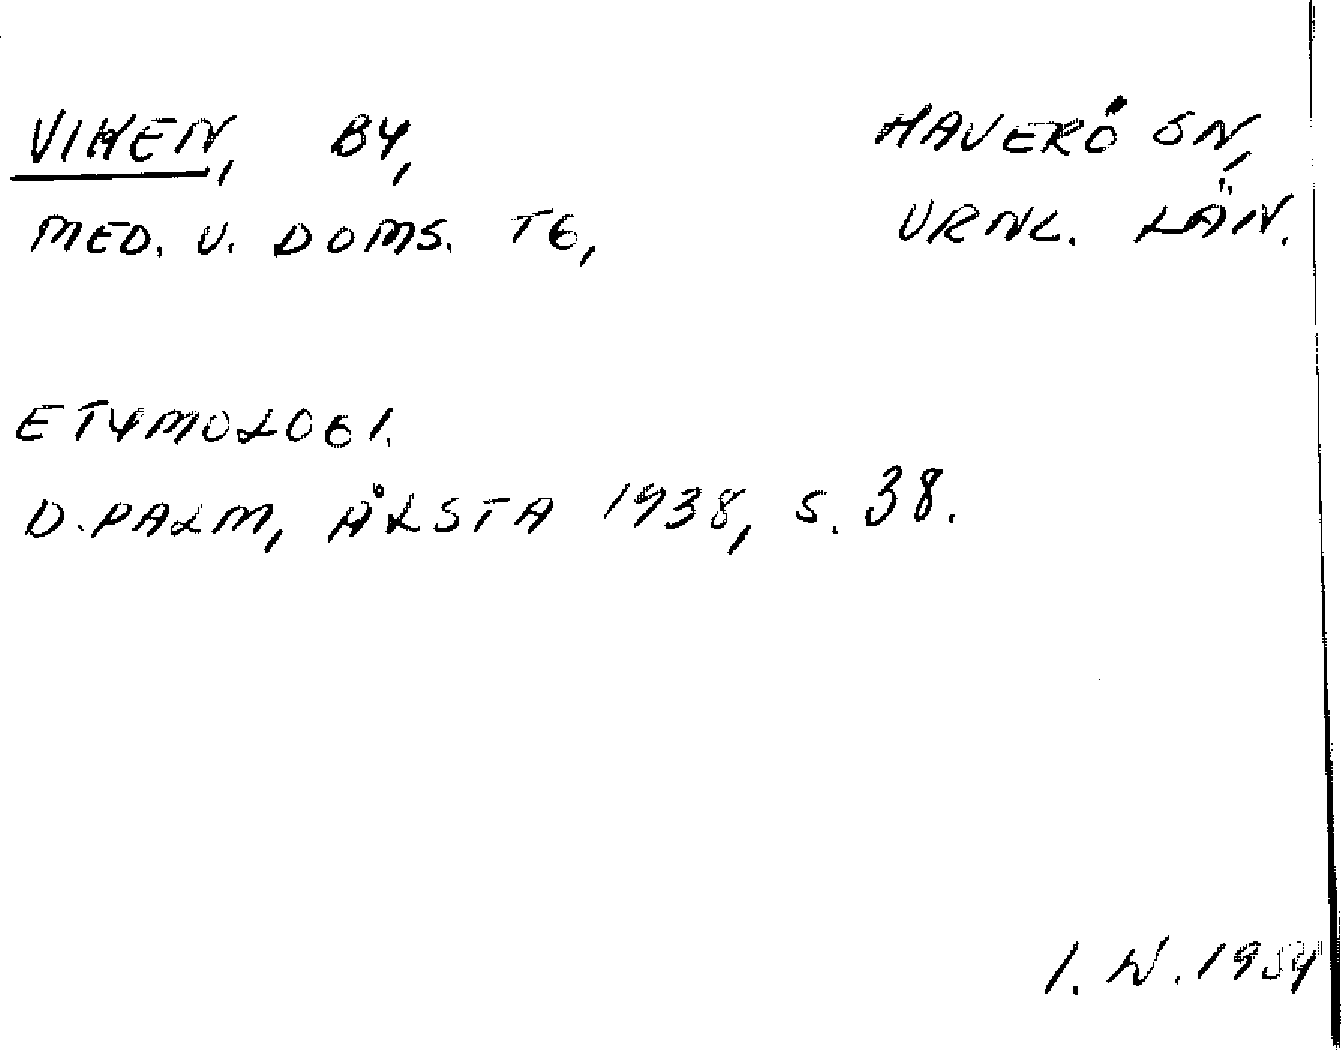 VIKEN, BY, HAVERÖ SN,
MED. V. DOMS. TG, VRNL. LÄN.
ETYMOLOGI.
D. PALM, ÅLSTA 1938, S. 38.
I. W. 1954